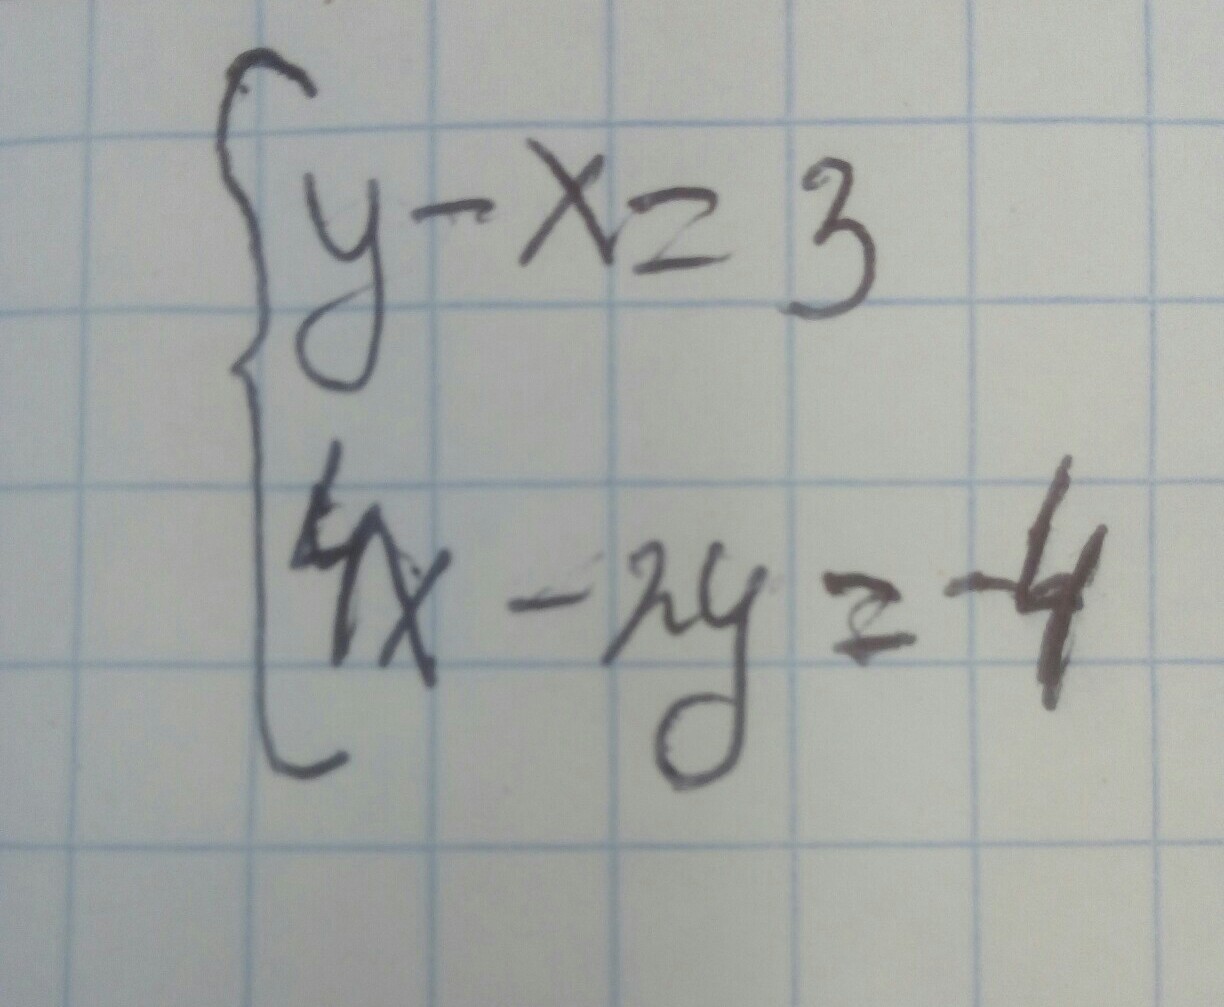 y - x = 3
4x - 2y = -4